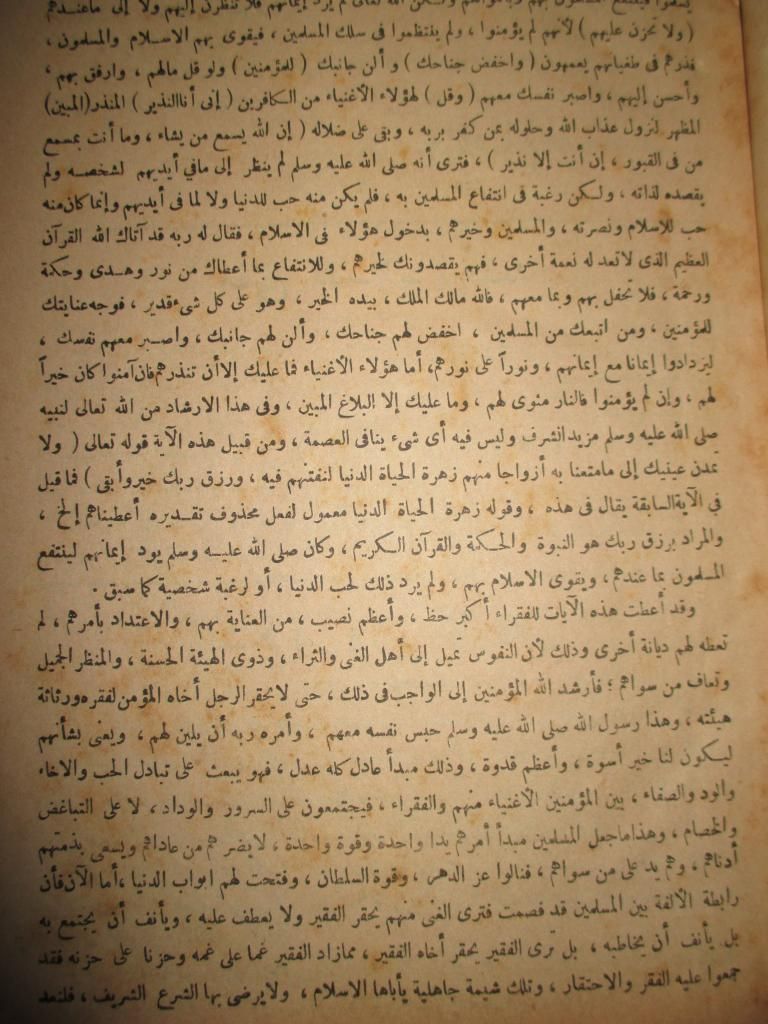 ( ولا تحزن عليهم ) لأنهم لم يؤمنوا ، ولم ينتظموا فى سلك المسلمين ، فيقوى بهم الاسلام والمسلمون ،
فذرهم فى طغيانهم يعمهون ( واخفض جناحك ) وألن جانبك ( للمؤمنين ) ولو قل مالهم ، وارفق بهم ،
وأحسن إليهم ، واصبر نفسك معهم ( وقل ) لهؤلاء الأغنياء من الكافرين ( إنى أنا النذير ) المنذر (المبين)
المظهر لنزول عذاب الله وحلوله بمن كفر بربه ، وبقى على ضلاله ( إن الله يسمع من يشاء ، وما أنت بمسمع
من فى القبور ، إن أنت إلا نذير ) ، فترى أنه صلى الله عليه وسلم لم ينظر إلى مافي أيديهم لشخصه ولم
يقصده لذاته ، ولكن رغبة فى انتفاع المسلمين به ، فلم يكن منه حب للدنيا ولا لما فى أيديهم وإنما كان منه
حب للاسلام ونصرته ، والمسلمين وخيرهم ، بدخول هؤلاء فى الاسلام ، فقال له ربه قد آتاك الله القرآن
العظيم الذى لاتعد له نعمة أخرى ، فهم يقصدونك لخيرهم ، وللانتفاع بما أعطاك من نور وهدى وحكمة
ورحمة ، فلا تحفل بهم وبما معهم ، فالله مالك الملك ، بيده الخير ، وهو على كل شىء قدير ، فوجه عنايتك
للمؤمنين ، ومن اتبعك من المسلمين ، اخفض لهم جناحك ، وألن لهم جانبك ، واصبر معهم نفسك ،
ليزدادوا إيمانا مع إيمانهم ، ونوراً على نورهم، أما هؤلاء الأغنياء فما عليك إلا أن تنذرهم فان آمنوا كان خيراً
لهم ، وإن لم يؤمنوا فالنار مثوى لهم ، وما عليك إلا البلاغ المبين ، وفى هذا الارشاد من الله تعالى لنبيه
صلى الله عليه وسلم مزيد الشرف وليس فيه أى شىء ينافى العصمة ، ومن قبيل هذه الآية قوله تعالى ( ولا
تمدن عينيك إلى مامتعنا به أزواجا منهم زهرة الحياة الدنيا لنفتنهم فيه ، ورزق ربك خير وأبقى ) فما قيل
في الآية السابقة يقال فى هذه ، وقوله زهرة الحياة الدنيا معمول لفعل محذوف تقديره أعطيناهم إلخ ،
والمراد برزق ربك هو النبوة والحكمة والقرآن الكريم ، وكان صلى الله عليه وسلم يود إيمانهم لينتفع
المسلمون بما عندهم ، ويقوى الاسلام بهم ، ولم يرد ذلك لحب الدنيا ، أو لرغبة شخصية كما سبق .
وقد أعطت هذه الآيات للفقراء أكبر حظ ، وأعظم نصيب ، من العناية بهم ، والاعتداد بأمرهم ، لم
تعطه لهم ديانة أخرى وذلك لأن النفوس تميل إلى أهل الغنى والثراء ، وذوى الهيئة الحسنة ، والمنظر الجميل
وتعاف من سواهم ؛ فأرشد الله المؤمنين إلى الواجب فى ذلك ، حتى لايحقر الرجل أخاه المؤمن لفقره ورثاثة
هيئته ، وهذا رسول الله صلى الله عليه وسلم حبس نفسه معهم ، وأمره ربه أن يلين لهم ، ويعنى بشأنهم
ليكون لنا خير أسوة ، وأعظم قدوة ، وذلك مبدأ عادل كله عدل ، فهو يبعث على تبادل الحب والاخاء
والود والصفاء ، بين المؤمنين الأغنياء منهم والفقراء ، فيجتمعون على السرور والوداد ، لا على التباغض
والخصام ، وهذا ماجعل المسلمين مبدأ أمرهم يدا واحدة وقوة واحدة ، لايضرهم من عاداهم ويسعى بذمتهم
أدناهم ، وهم يد على من سواهم ، فنالوا عز الدهر ، وقوة السلطان ، وفتحت لهم ابواب الدنيا ، أما الآن فأن
رابطة الألفة بين المسلمين قد فصمت فترى الغنى منهم يحقر الفقير ولا يعطف عليه ، ويأنف أن يجتمع به
بل يأنف أن يخاطبه ، بل ترى الفقير يحقر أخاه الفقير ، ممازاد الفقير غما على غمه وحزنا على حزنه فقد
جمعوا عليه الفقر والاحتقار ، وتلك شيمة جاهلية يأباها الاسلام ، ولايرضى بها الشرع الشريف ، فلنعد